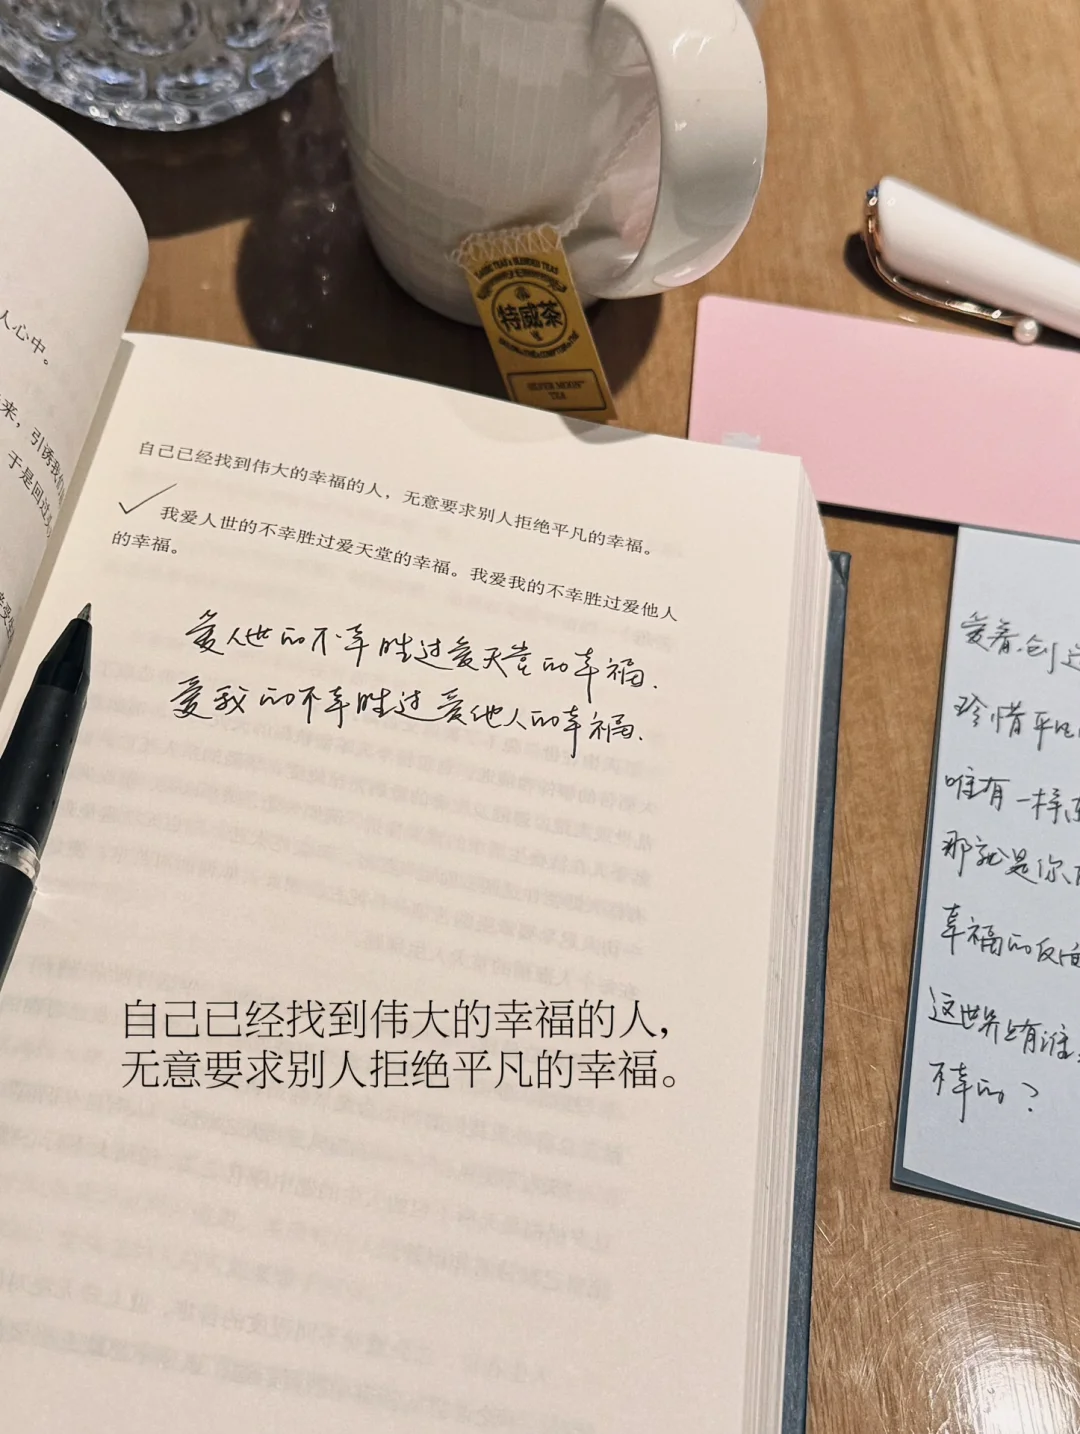 人心中。
来，引诱我们
于是回过头
DARK TEAS & BLENDED TEAS
特威茶
SILVER MOON
TEA
自己已经找到伟大的幸福的人，无意要求别人拒绝平凡的幸福。
我爱人世的不幸胜过爱天堂的幸福。我爱我的不幸胜过爱他人
的幸福。
爱人世的不幸胜过爱天堂的幸福.
爱我的不幸胜过爱他人的幸福.
自己已经找到伟大的幸福的人,
无意要求别人拒绝平凡的幸福。
爱着.创造
珍惜平凡
唯有一样东
那就是你
幸福的反面
这世界上有谁
不幸的？